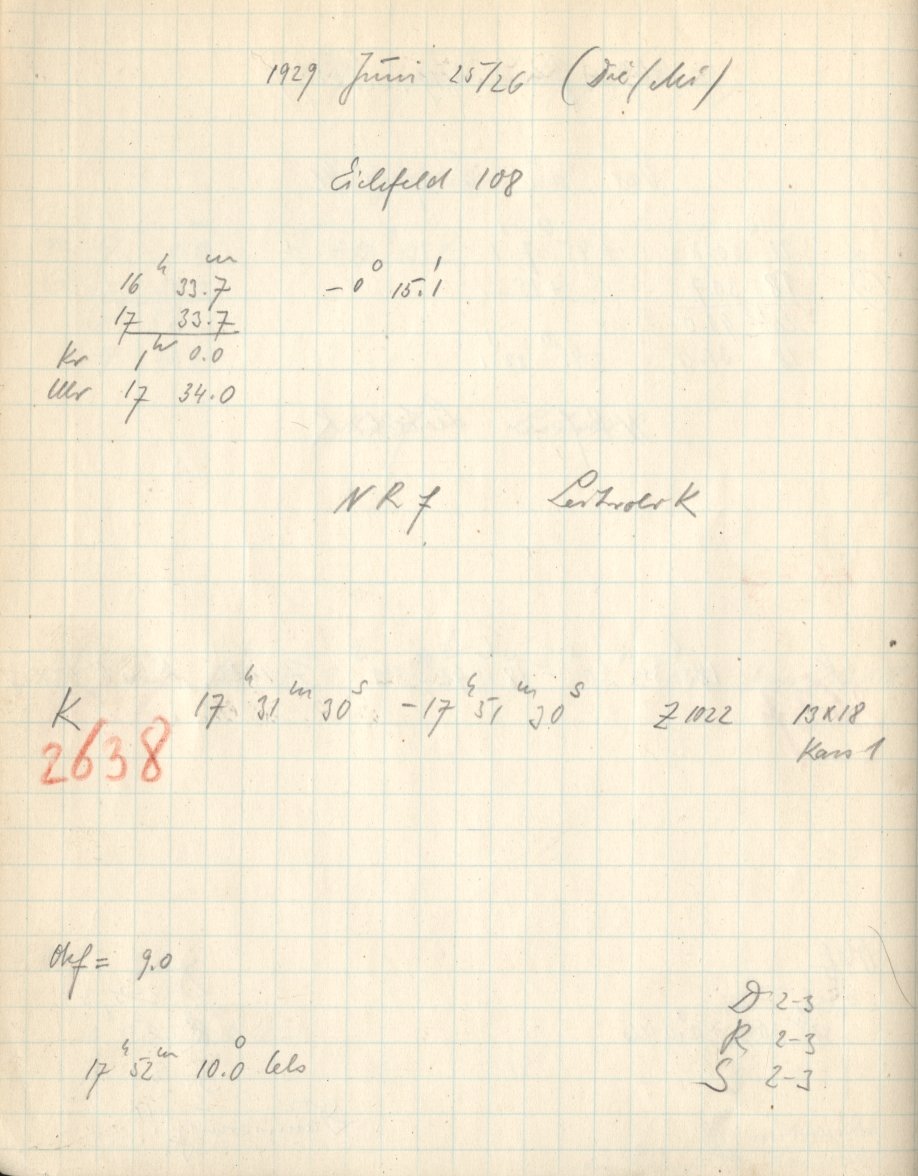 1929 Juni 25/26 (Die/Mi)
Eichfeld 108
16ʰ 33.7ᵐ −0° 15.1'
17 33.7
Kr 1ʰ 0.0
Uhr 17 34.0
NR 7 Leitrohr K
K 17ʰ 31ᵐ 30ˢ − 17ʰ 51ᵐ 30ˢ Z 1022 13x18
2638 Kass 1
Okf = 9.0
17ʰ 52ᵐ 10.0° Cels
D 2-3
R 2-3
S 2-3